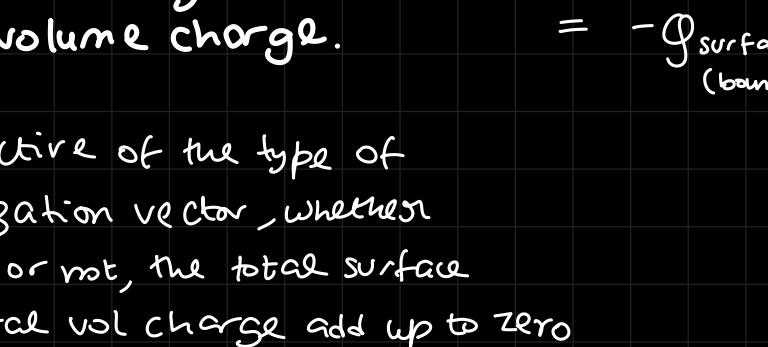 volume charge. = -Q surfa
(boun
ctive of the type of
zation vector, whether
or not, the total surface
al vol charge add up to zero